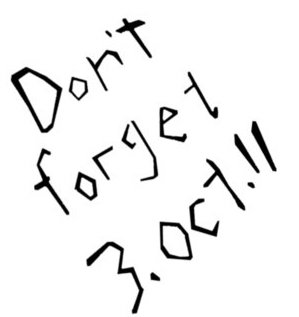 Don't
forget
3. Oct.!!